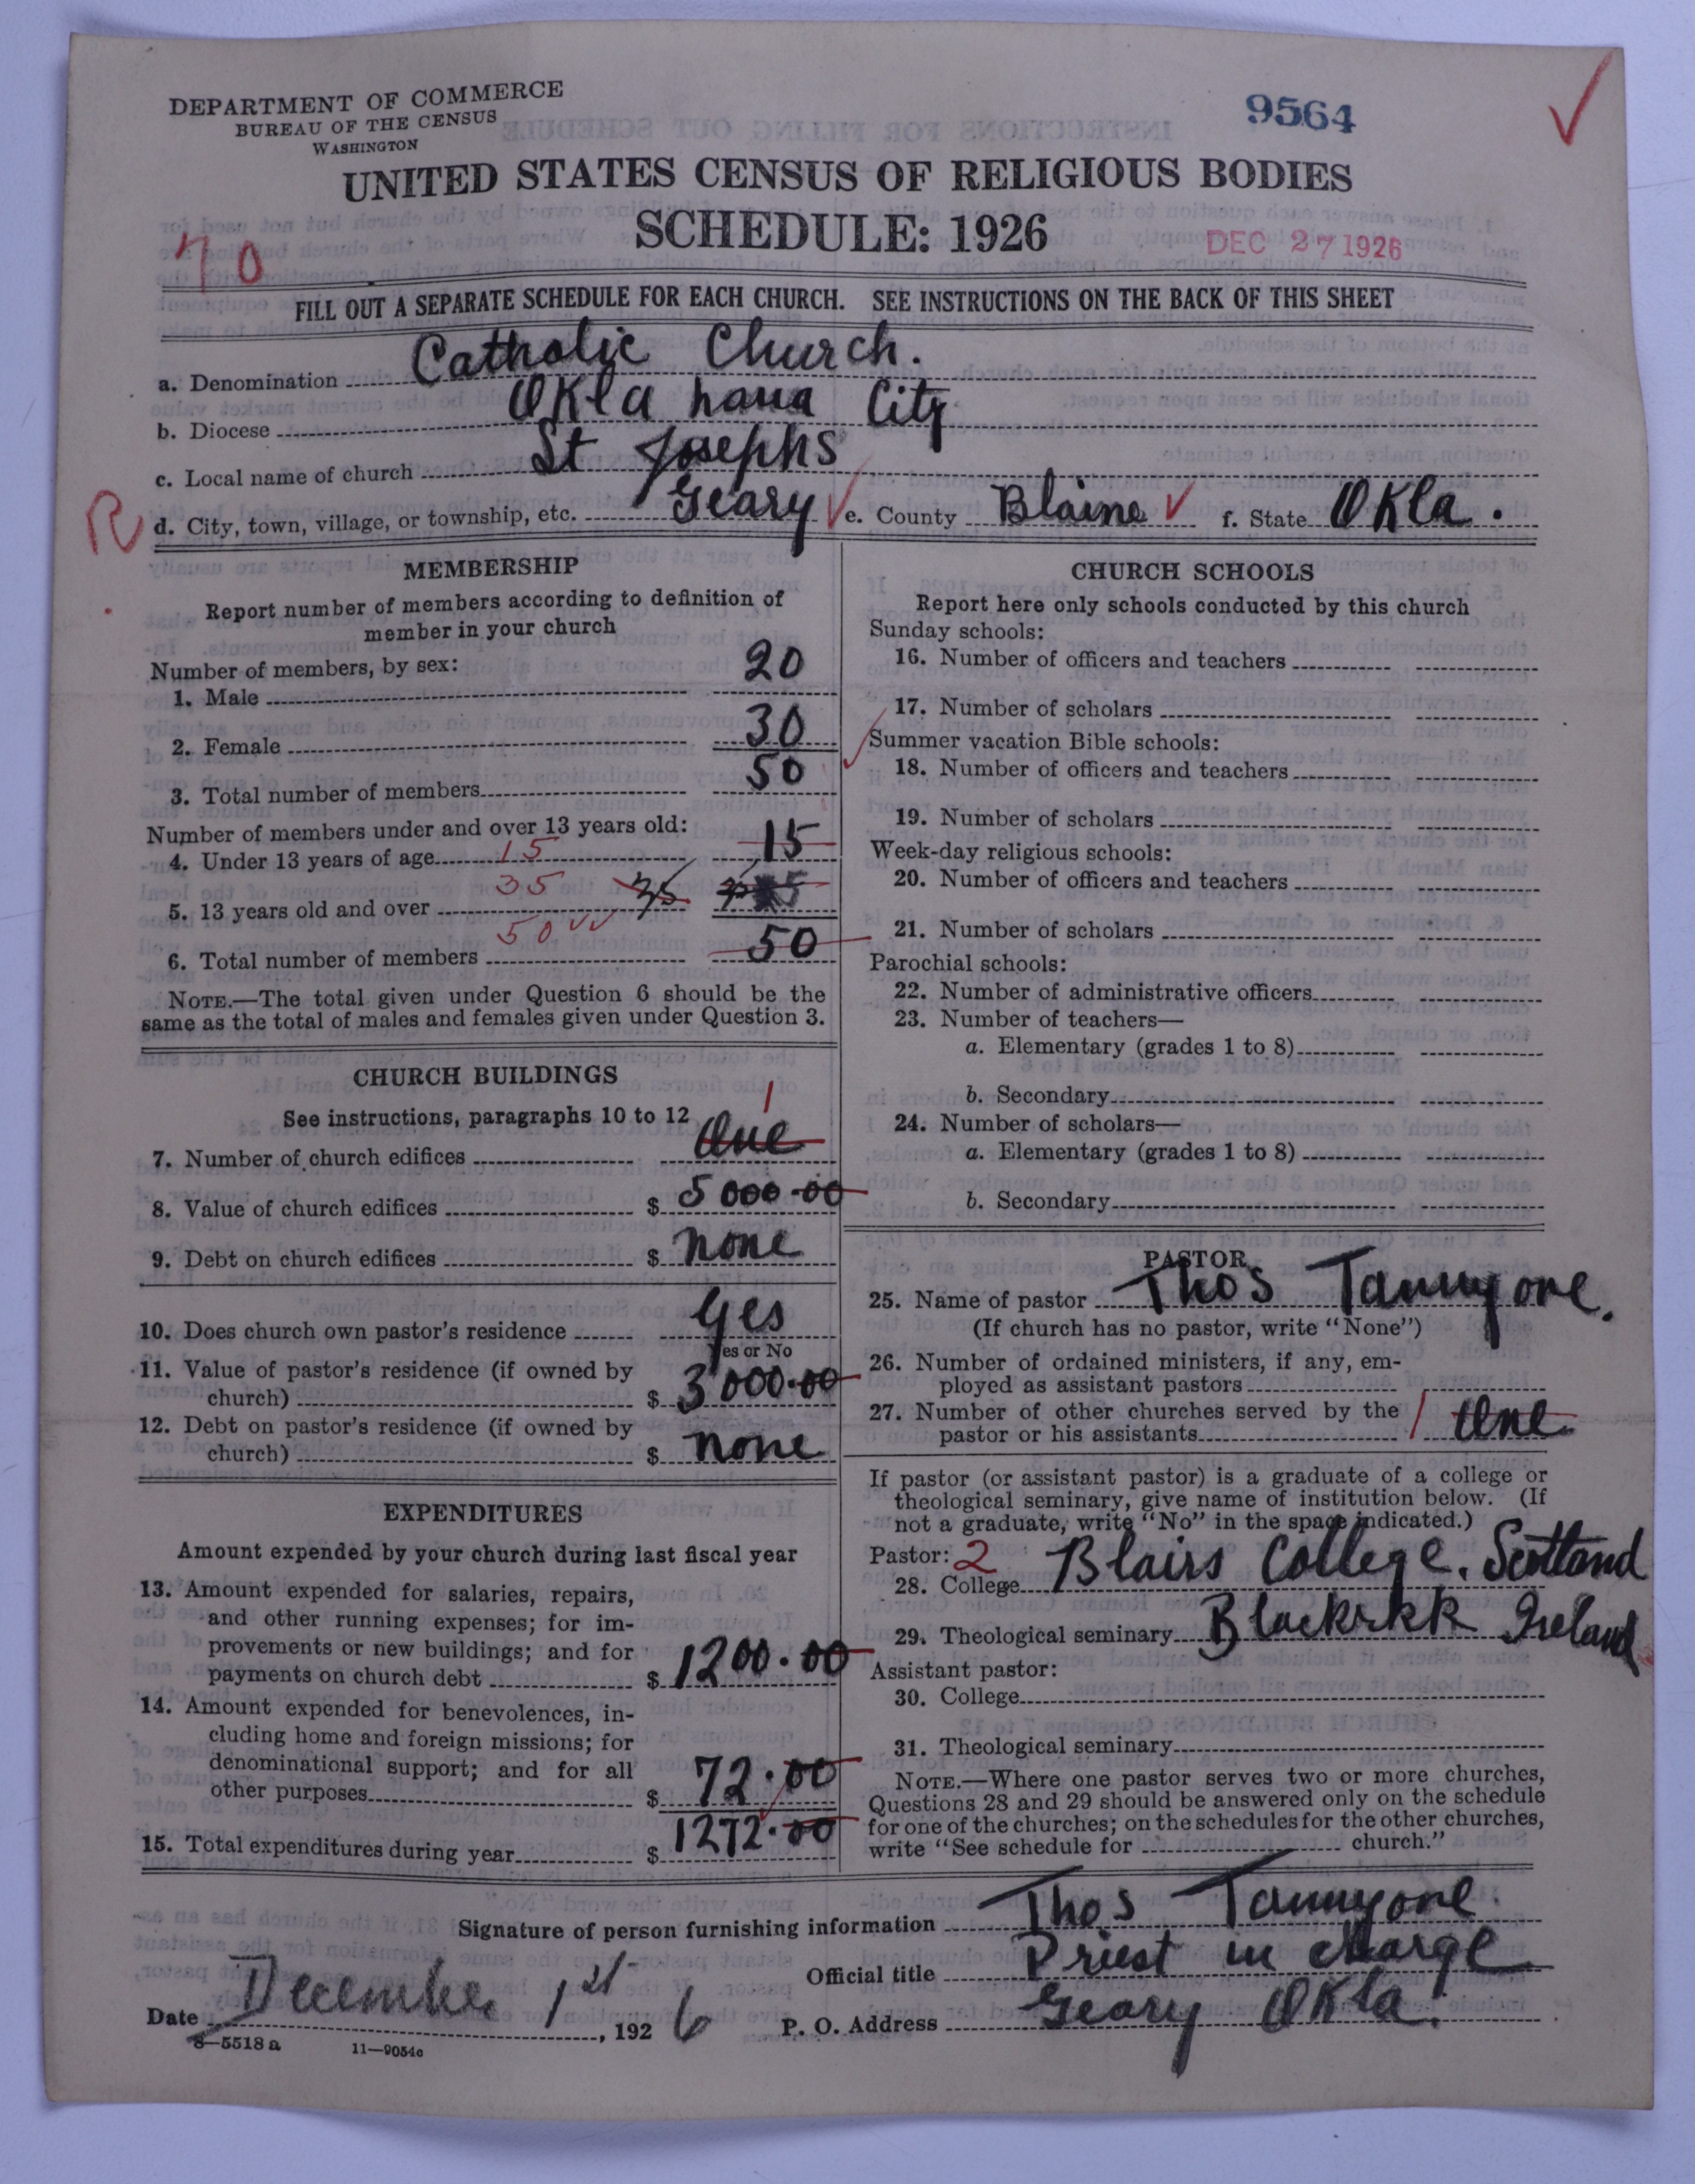 DEPARTMENT OF COMMERCE
BUREAU OF THE CENSUS
WASHINGTON
9564
UNITED STATES CENSUS OF RELIGIOUS BODIES
SCHEDULE: 1926
DEC 27 1926
70
FILL OUT A SEPARATE SCHEDULE FOR EACH CHURCH. SEE INSTRUCTIONS ON THE BACK OF THIS SHEET
a. Denomination Catholic Church.
b. Diocese Oklahoma City
c. Local name of church St Josephs
R d. City, town, village, or township, etc. Geary e. County Blaine f. State Okla.
MEMBERSHIP
Report number of members according to definition of
member in your church
Number of members, by sex:
1. Male 20
2. Female 30
3. Total number of members 50
Number of members under and over 13 years old:
4. Under 13 years of age 15 15
5. 13 years old and over 35 35
6. Total number of members 50 50
NOTE.—The total given under Question 6 should be the
same as the total of males and females given under Question 3.
CHURCH BUILDINGS
See instructions, paragraphs 10 to 12 1
7. Number of church edifices One
8. Value of church edifices $ 5000.00
9. Debt on church edifices $ none
10. Does church own pastor's residence yes
Yes or No
11. Value of pastor's residence (if owned by
church) $ 3000.00
12. Debt on pastor's residence (if owned by
church) $ none
EXPENDITURES
Amount expended by your church during last fiscal year
13. Amount expended for salaries, repairs,
and other running expenses; for im-
provements or new buildings; and for
payments on church debt $ 1200.00
14. Amount expended for benevolences, in-
cluding home and foreign missions; for
denominational support; and for all
other purposes $ 72.00
15. Total expenditures during year $ 1272.00
CHURCH SCHOOLS
Report here only schools conducted by this church
Sunday schools:
16. Number of officers and teachers
17. Number of scholars
Summer vacation Bible schools:
18. Number of officers and teachers
19. Number of scholars
Week-day religious schools:
20. Number of officers and teachers
21. Number of scholars
Parochial schools:
22. Number of administrative officers
23. Number of teachers—
a. Elementary (grades 1 to 8)
b. Secondary
24. Number of scholars—
a. Elementary (grades 1 to 8)
b. Secondary
PASTOR
25. Name of pastor Thos
(If church has no pastor, write "None")
26. Number of ordained ministers, if any, em-
ployed as assistant pastors
27. Number of other churches served by the
pastor or his assistants 1 One
If pastor (or assistant pastor) is a graduate of a college or
theological seminary, give name of institution below. (If
not a graduate, write "No" in the space indicated.)
Pastor: 2
28. College Blairs College. Scotland
29. Theological seminary Ireland
Assistant pastor:
30. College
31. Theological seminary
NOTE.—Where one pastor serves two or more churches,
Questions 28 and 29 should be answered only on the schedule
for one of the churches; on the schedules for the other churches,
write "See schedule for church."
Signature of person furnishing information Thos
Official title Priest in charge
Date December 1st, 1926 P. O. Address Geary Okla.
8—5518 a 11—9054c